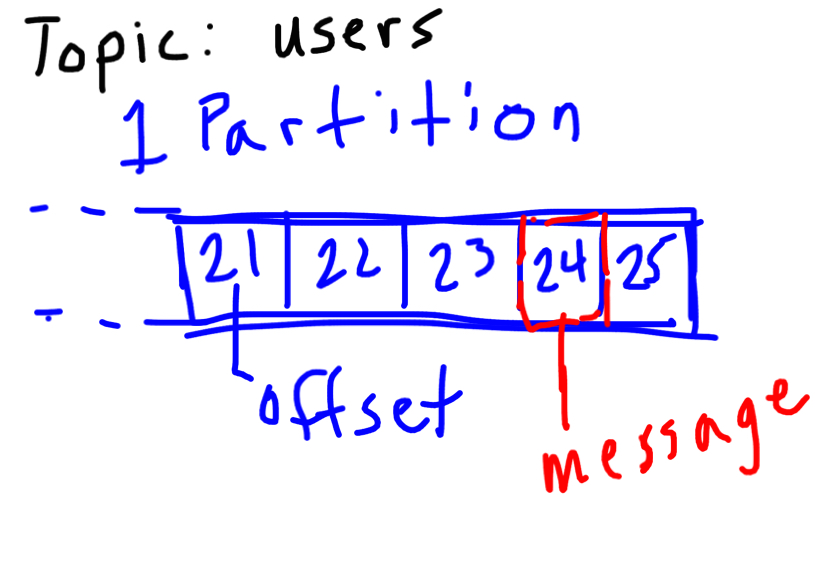 Topic: users
1 Partition
21 22 23 24 25
offset
message